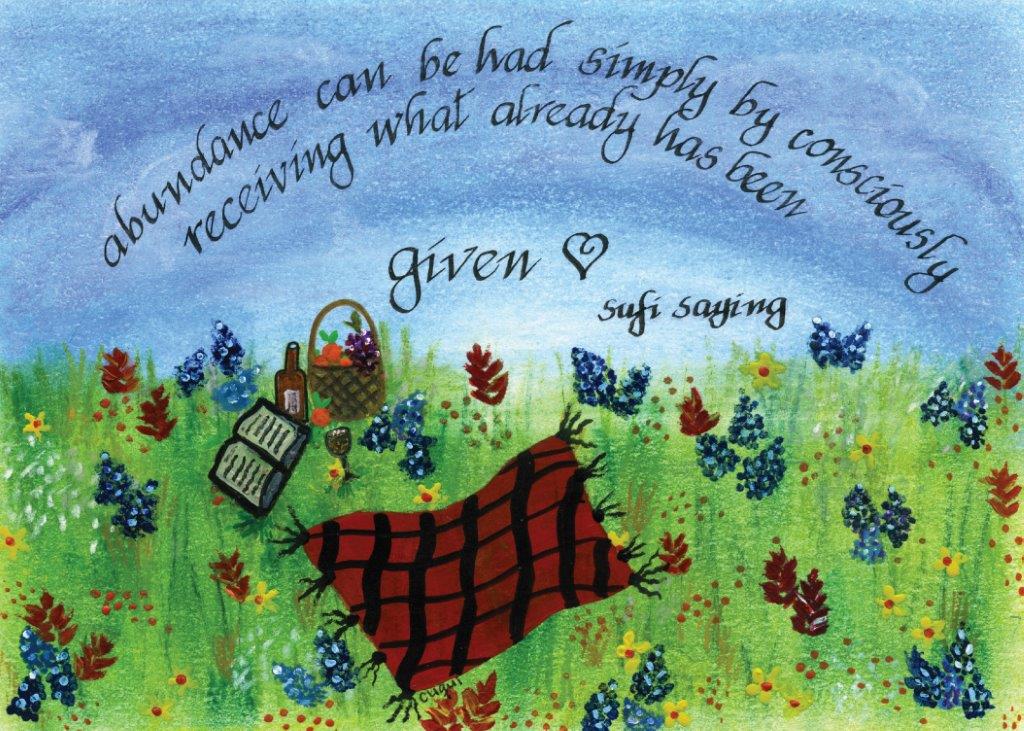 abundance can be had simply by consciously
receiving what already has been
given
sufi saying
cuqui